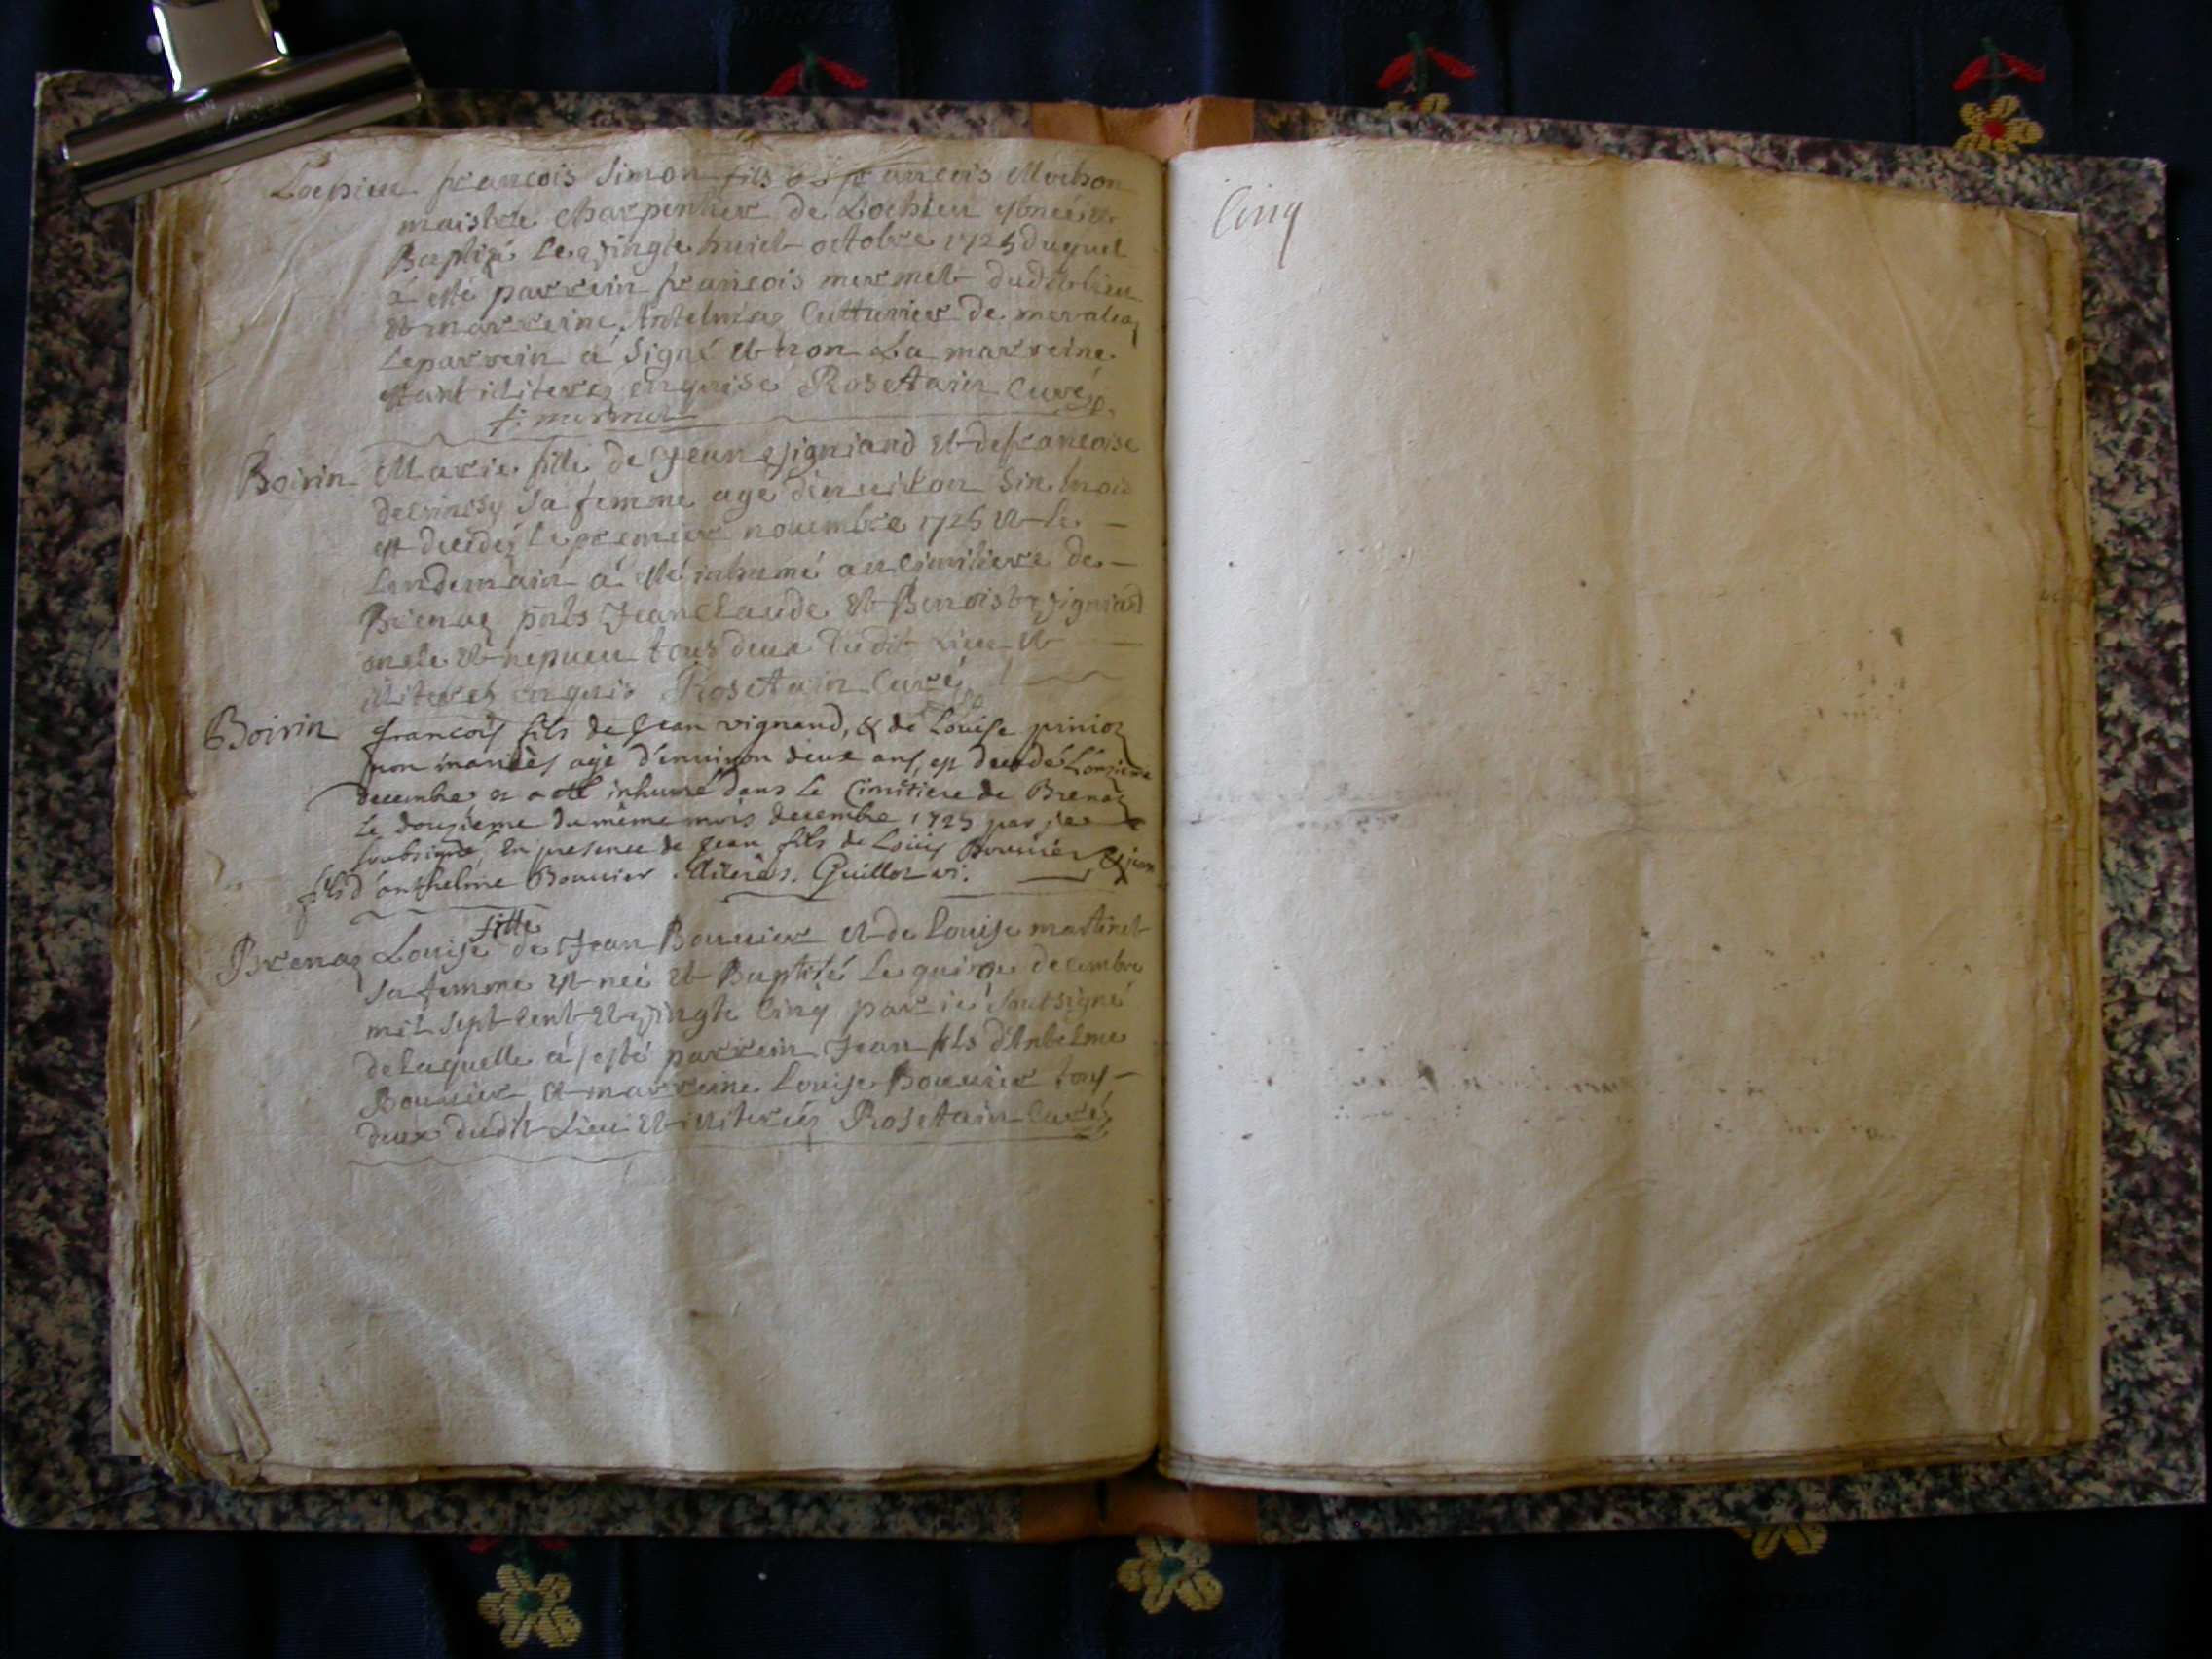 Lochieu francois Simon fils de francois Mochon
maistre charpentier de Lochieu est né et
Baptizé le vingte huict octobre 1725 duquel
á esté parrein francois mermet dudit lieu
et marreine Antelmaz Cutturier de
le parrein á Signé et non La marreine
estant iliterez enquise Rosetain Curé
f. mermet
Boirin Marie fille de Jean vigniand et de francoise
sa femme agé denuiron Six mois
est decedéz le premier nouembre 1725 et le
Lendemain á esté inhumé au Cimitiere de
Brenaz pnts Jean Claude et Benoist vigniand
oncle et nepueu tous deux dudit Lieu et
illiterez enquis Rosetain Curé
Boirin francois fils de Jean vignand, & de Louise pinioz
non mariès agé d'enuiron deux ans, est decedé L'onzieme
decembre et a esté inhumé dans Le Cimitiere de Brenaz
Le douzieme du même mois decembre 1725 par je
soubsigné, En presence de Jean fils de Louis Bouuier, & jean
fils d'anthelme Bouuier illiterès. Guilloz vi.
fille
Brenaz Louise de Jean Bouuier et de Louise martinet
sa femme est neé et Baptisé le quinze decembre
mil sept cent et vingte cinq par ié soutsigné
de laquelle á esté parrein Jean fils d'Antelme
Bouuier et marreine Louise Bouuier tous
deux dudit Lieu et illiteréz Rosetain Curéz
Cinq